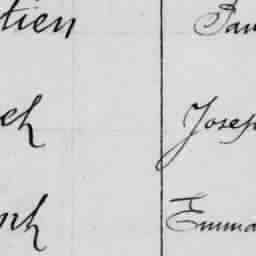 tien Pau
ch Joseph
nh Emma